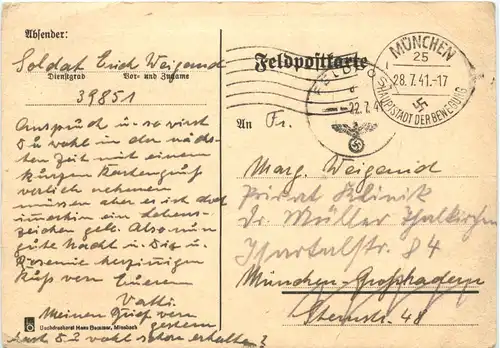 Absender:
Soldat Erich Weigand
Dienstgrad Vor- und Zuname
39851
Anspruch u. so wirst
Du wohl in der näch-
sten Zeit mit einem
kurzen Kartengruß
vorlieb nehmen
müssen aber es ist doch
immerhin ein Lebens-
zeichen gelt. Also nun
gute Nacht u. Dir u.
Rosemie herzinnigen
Kuß von Euerem
Vatti.
Meinen Brief von
gestern
hast Du wohl schon erhalten?
Buchdruckerei Hans Miesbach
Feldpostkarte
FELDPOST
d
22.7.41
MÜNCHEN
25
28.7.41.-17
HAUPTSTADT DER BEWEGUNG
An Fr.
Marg. Weigand
Privat Klinik
Dr. Müller Thalkirchen
Isartalstr. 84
München-Großhadern
Sternstr. 48